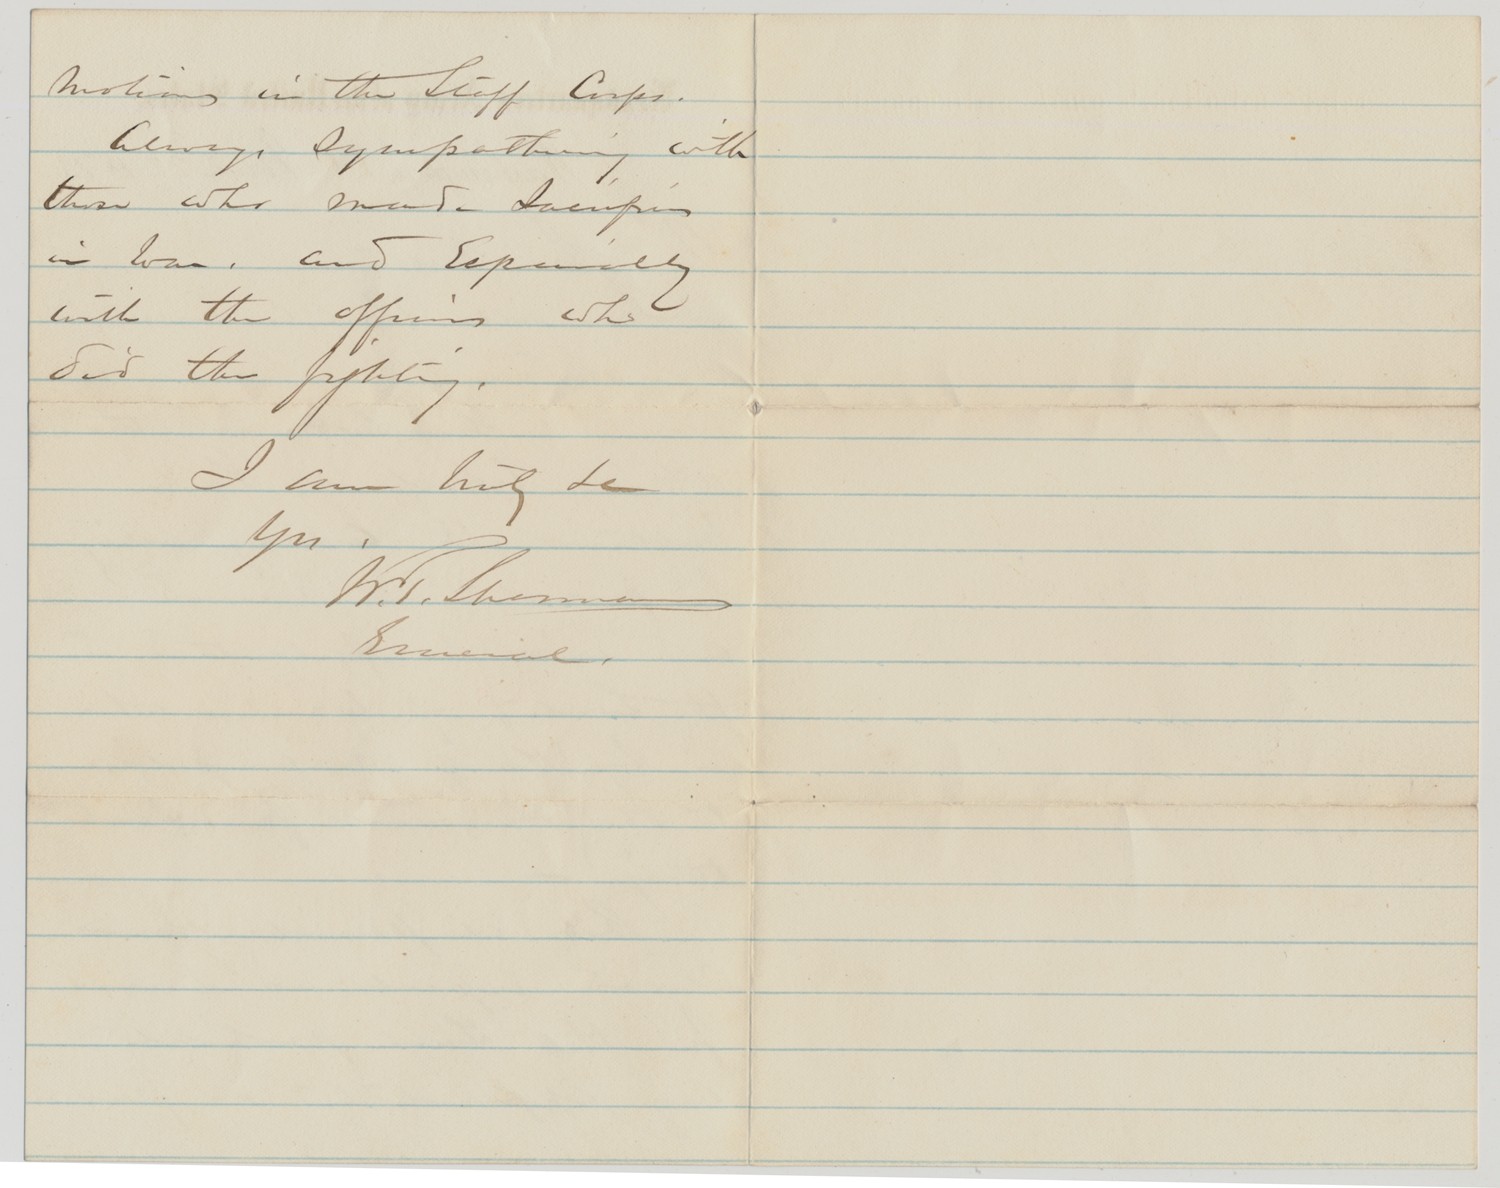 motions in the Staff Corps.
Always sympathizing with
those who made Sacrifices
in War. and Especially
with the officers who
did the fighting.
I am truly &c
Yrs.
W.T. Sherman
General.